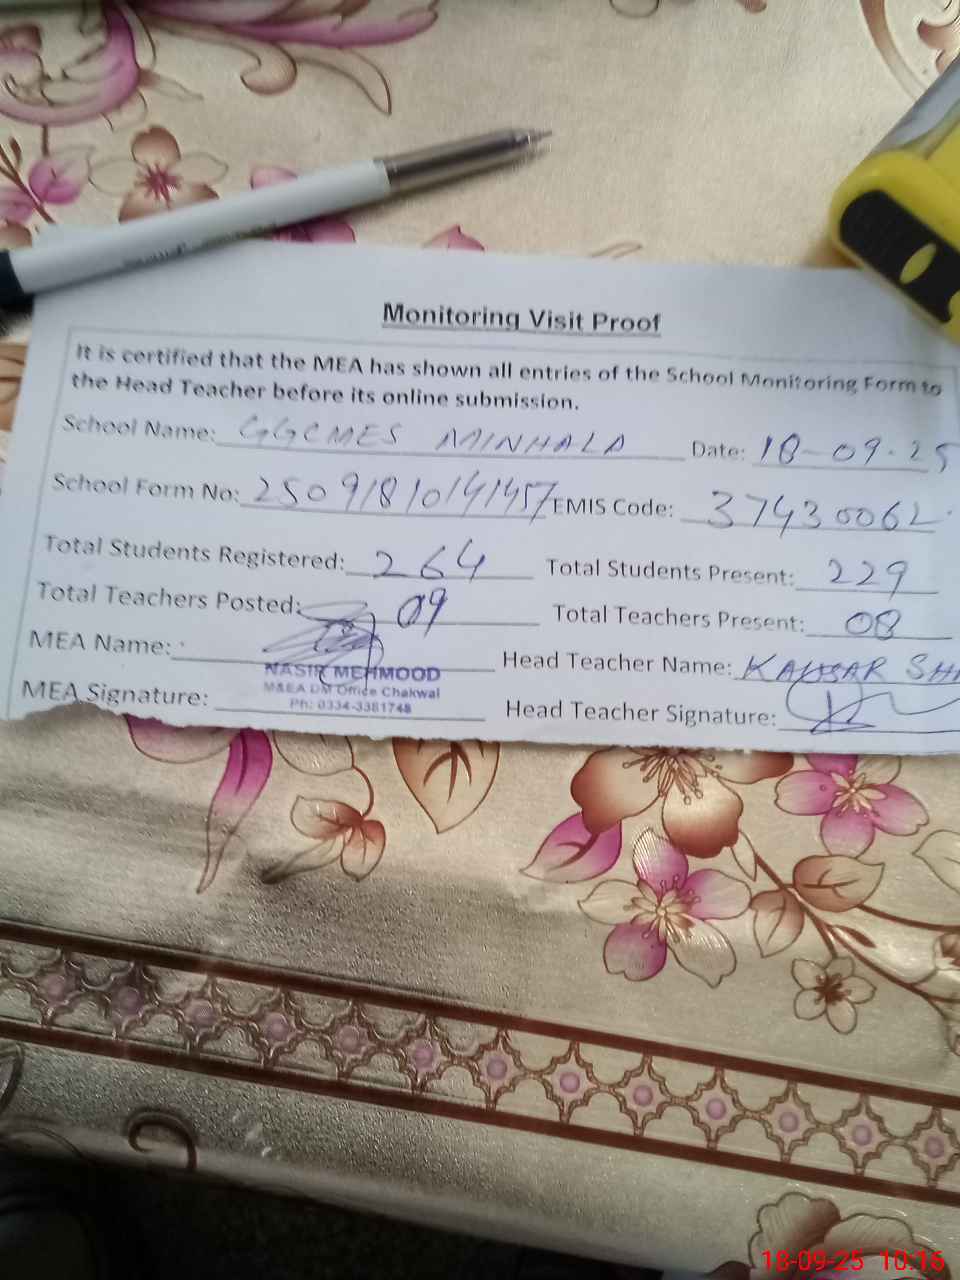 Monitoring Visit Proof
It is certified that the MEA has shown all entries of the School Monitoring Form to
the Head Teacher before its online submission.
School Name: GGCMES MINHALA Date: 18-09-25
School Form No: 250918101414157 EMIS Code: 37430062
Total Students Registered: 264 Total Students Present: 229
Total Teachers Posted: 09 Total Teachers Present: 08
MEA Name: Head Teacher Name: KAUSAR SH
NASIR MEHMOOD
M&EA DM Office Chakwal
Ph: 0334-3381748
MEA Signature: Head Teacher Signature:
18-09-25 10:16